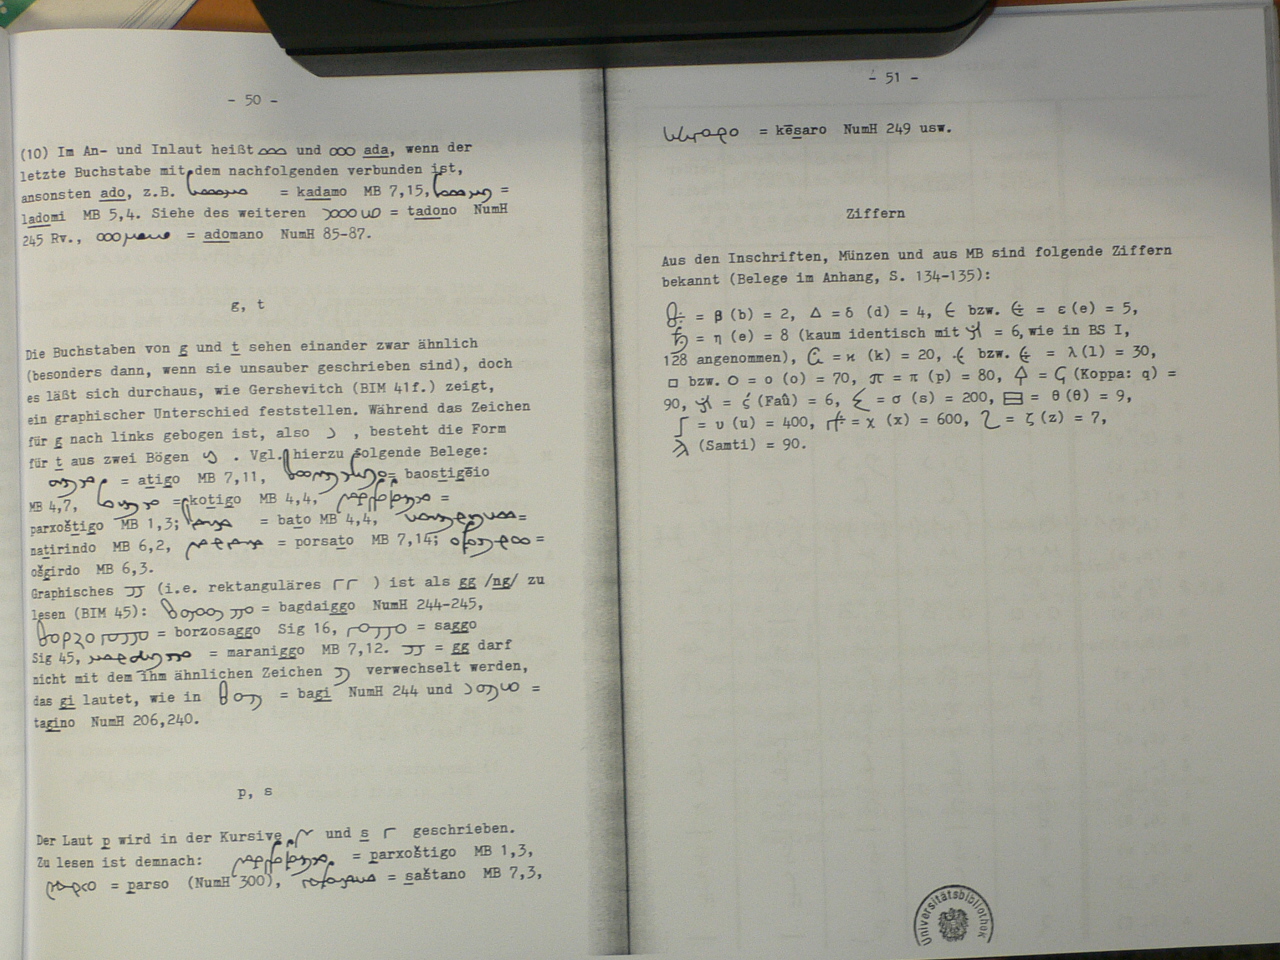 - 50 -
(10) Im An- und Inlaut heißt und ada, wenn der
letzte Buchstabe mit dem nachfolgenden verbunden ist,
ansonsten ado, z.B. = kadamo MB 7,15, =
ladomi MB 5,4. Siehe des weiteren = tadono NumH
245 Rv., = adomano NumH 85-87.
g, t
Die Buchstaben von g und t sehen einander zwar ähnlich
(besonders dann, wenn sie unsauber geschrieben sind), doch
es läßt sich durchaus, wie Gershevitch (BIM 41f.) zeigt,
ein graphischer Unterschied feststellen. Während das Zeichen
für g nach links gebogen ist, also , besteht die Form
für t aus zwei Bögen . Vgl. hierzu folgende Belege:
= atigo MB 7,11, = baostigēio
MB 4,7, = kotigo MB 4,4, =
parxoštigo MB 1,3; = bato MB 4,4, =
natirindo MB 6,2, = porsato MB 7,14; =
ošgirdo MB 6,3.
Graphisches (i.e. rektanguläres ) ist als gg /ng/ zu
lesen (BIM 45): = bagdaiggo NumH 244-245,
= borzosaggo Sig 16, = saggo
Sig 45, = maraniggo MB 7,12. = gg darf
nicht mit dem ihm ähnlichen Zeichen verwechselt werden,
das gi lautet, wie in = bagi NumH 244 und =
tagino NumH 206,240.
p, s
Der Laut p wird in der Kursive und s geschrieben.
Zu lesen ist demnach: = parxoštigo MB 1,3,
= parso (NumH 300), = saštano MB 7,3,
- 51 -
= kēsaro NumH 249 usw.
Ziffern
Aus den Inschriften, Münzen und aus MB sind folgende Ziffern
bekannt (Belege im Anhang, S. 134-135):
= β (b) = 2, Δ = δ (d) = 4, ϵ bzw. = ε (e) = 5,
= η (e) = 8 (kaum identisch mit = 6, wie in BS I,
128 angenommen), = κ (k) = 20, bzw. = λ (l) = 30,
□ bzw. O = o (o) = 70, π = π (p) = 80, = (Koppa: q) =
90, = (Faû) = 6, = σ (s) = 200, = θ (θ) = 9,
= υ (u) = 400, = χ (x) = 600, = ζ (z) = 7,
(Samti) = 90.
Universitätsbibliothek